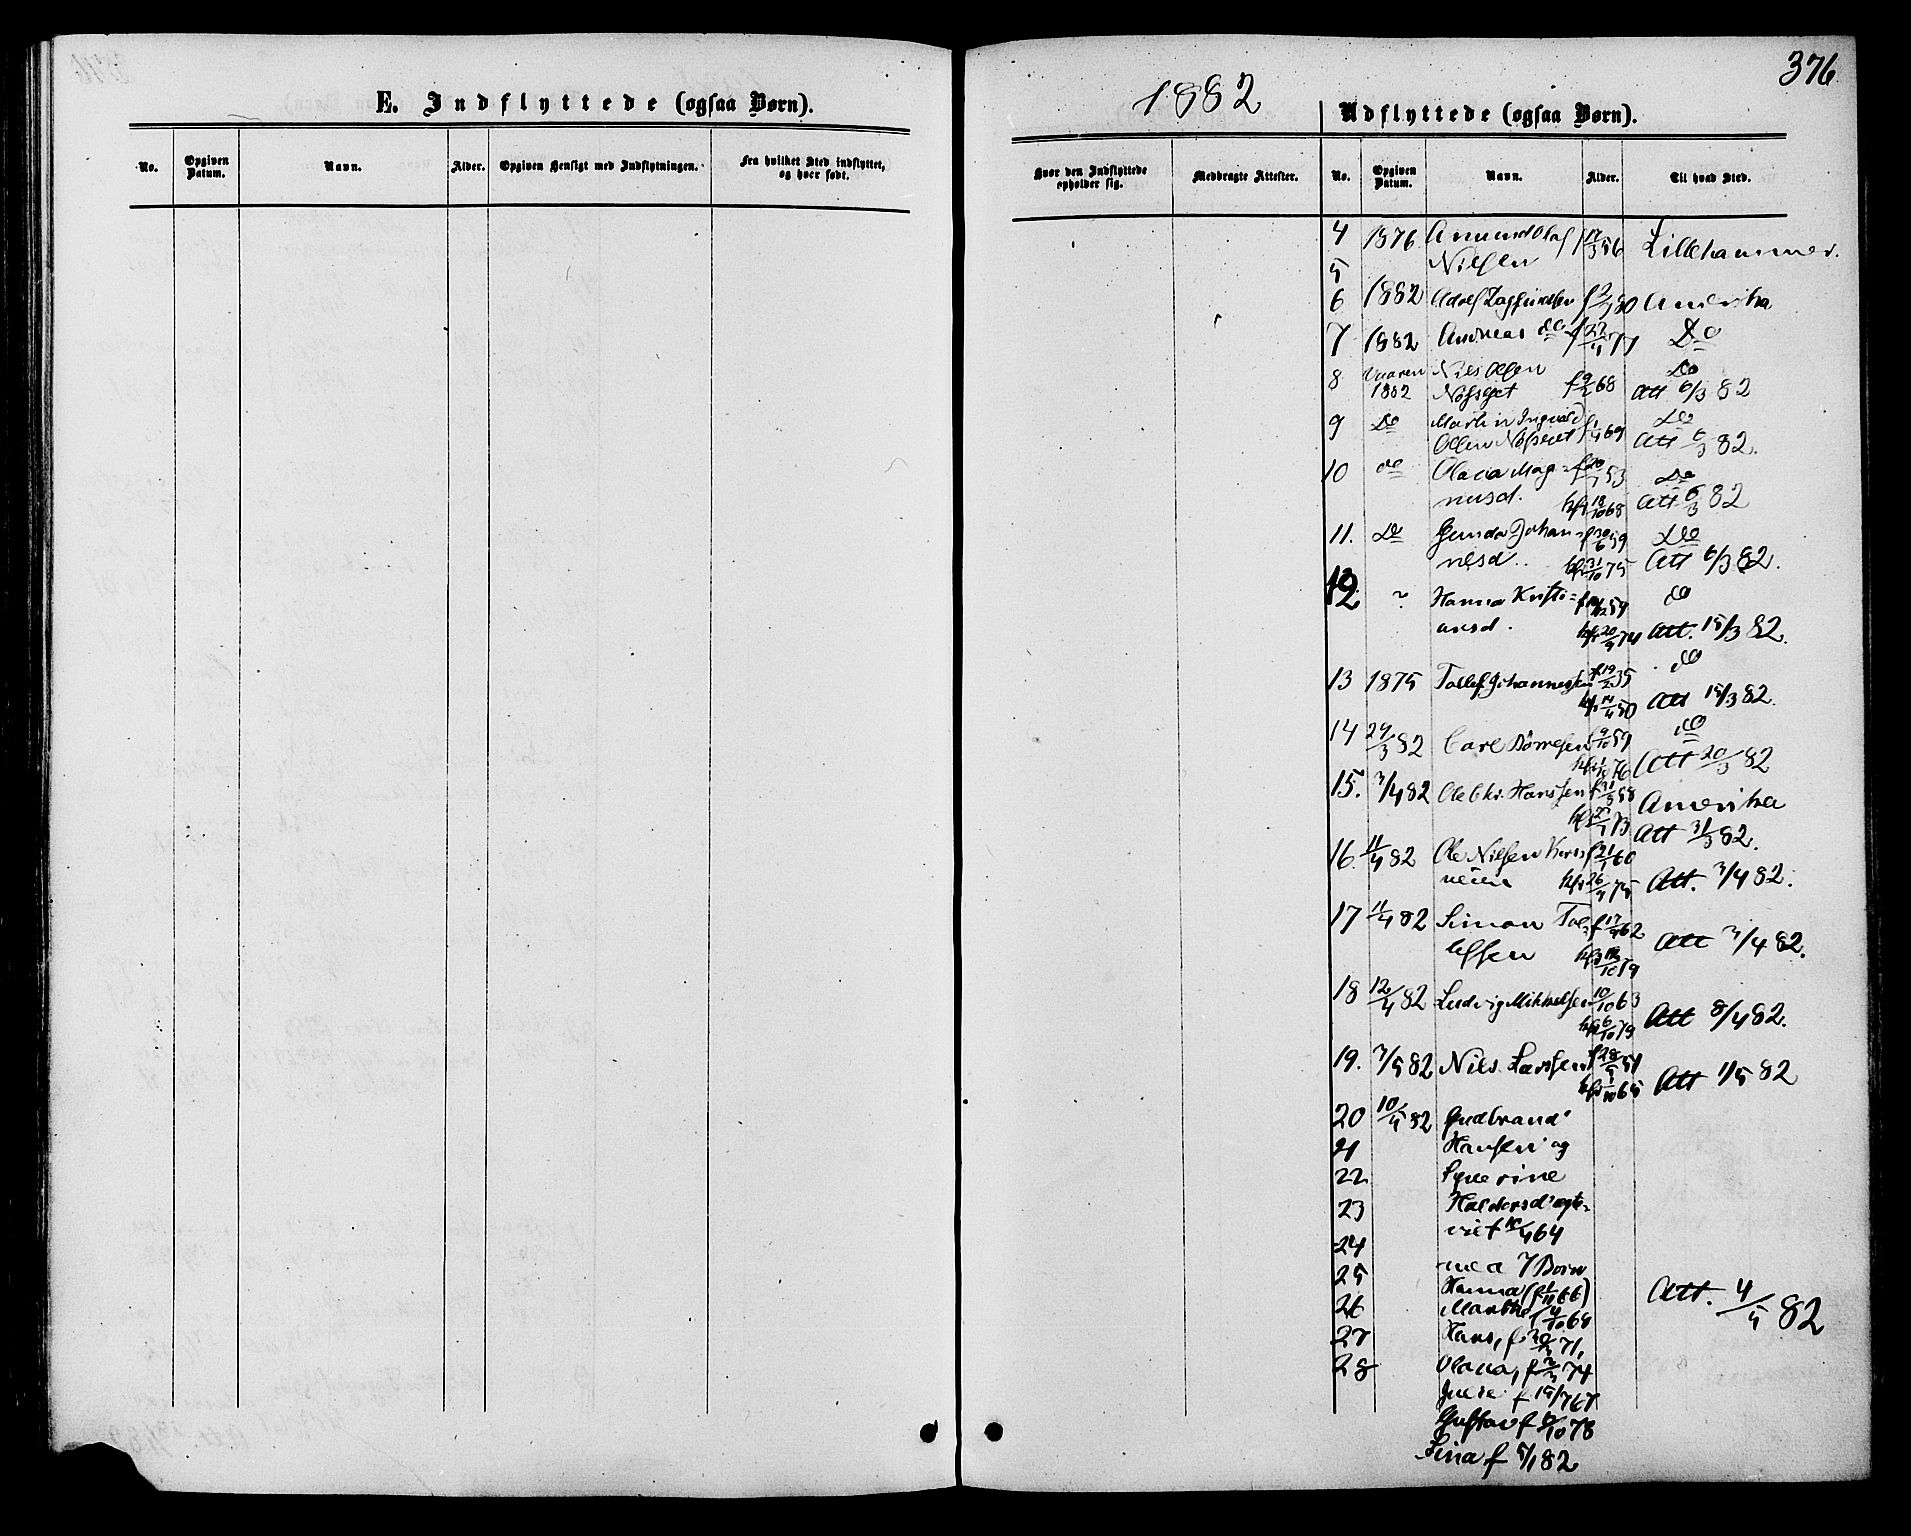 E. Indflyttede (ogsaa Børn).
No.
Opgiven Datum.
Navn.
Alder.
Opgiven Hensigt med Indflytningen.
Fra hvilket Sted indflyttet, og hvor født.
376
1882
Udflyttede (ogsaa Børn).
Hvor den Indflyttede opholder sig.
Medbragte Attester.
No.
Opgiven Datum.
Navn.
Alder.
Til hvad Sted.
4 1876 Amund Olaf f 17/3 56 Lillehammer.
5 Nilsen
6 1882 Adolf f 2/7 80 Amerika
7 1882 Andreas do f 22/4 77 Do
8 Vaaren Nils Olsen Do
1882 f 9/2 68 Att 6/3 82
9 Do Martin Ingvald f 1/4 69 Do
Olsen Att 6/3 82.
10 do Olava Mag= f 20/7 53 Do
nusd. kf 18/10 68 Att 6/3 82
11. Do Gunda Johan= f 30/6 59 Do
nesd.. kf 31/10 75 Att 6/3 82.
12 ? Hanna Kristi= f 59 do
ansd. kf 20/9 74 Att. 15/3 82.
13 1875 Tollef Johannessen f 19/2 35 do
kf 14/4 50 Att 15/3 82.
14 29/3 82 Carl f 9/10 59 do
kf 1/10 76 Att 20/3 82
15. 3/4 82 Ole Chr. Hanssen f 31/3 58 Amerika
kf 73 Att 31/3 82.
16. 11/4 82 Ole Nilsen f 21/1 60
kf 26/9 75 Att. 3/4 82.
17 11/4 82 Simon Tol= f 17/9 62
lefsen kf 12/10 79 Att 3/4 82.
18 12/4 82 Ludvig Mikkelsen 10/10 63
kf 6/10 79 Att 8/4 82.
19. 7/5 82 Nils Larssen f 28/5 51
kf 1/10 65 Att 1/5 82
20 10/5 82 Gudbrand
21 Hansen og
22 Syverine
23 Haldorsd. ægte=
viet 64
24
25 med 7 Børn
Hanna (f 1/11 66)
26 Marthe f 4/10 69
27 Hans, f 71,
28 Olava, f 2/3 74
Julie f 15/7 67
Gustav f 6/10 78
Lina f 5/1 82
Att. 4/5 82